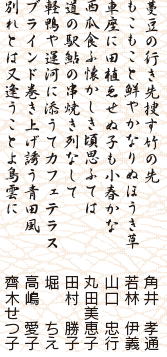 蔓豆の行き先捜す竹の先
角井 孝通
もこもこと鮮やかなりぬほうき草
若林 伊義
車座に田植ゑせぬ子も小春かな
山口 忠行
西瓜食ふ懐かしき頃思ふては
丸田美恵子
道の駅鮎の串焼き列なして
田村 勝子
軽鴨や運河に添うてカフェテラス
堀 ちえ
ブラインド巻き上げ誘う青田風
高嶋 愛子
別れとは又逢うことよ鳥雲に
齊木せつ子